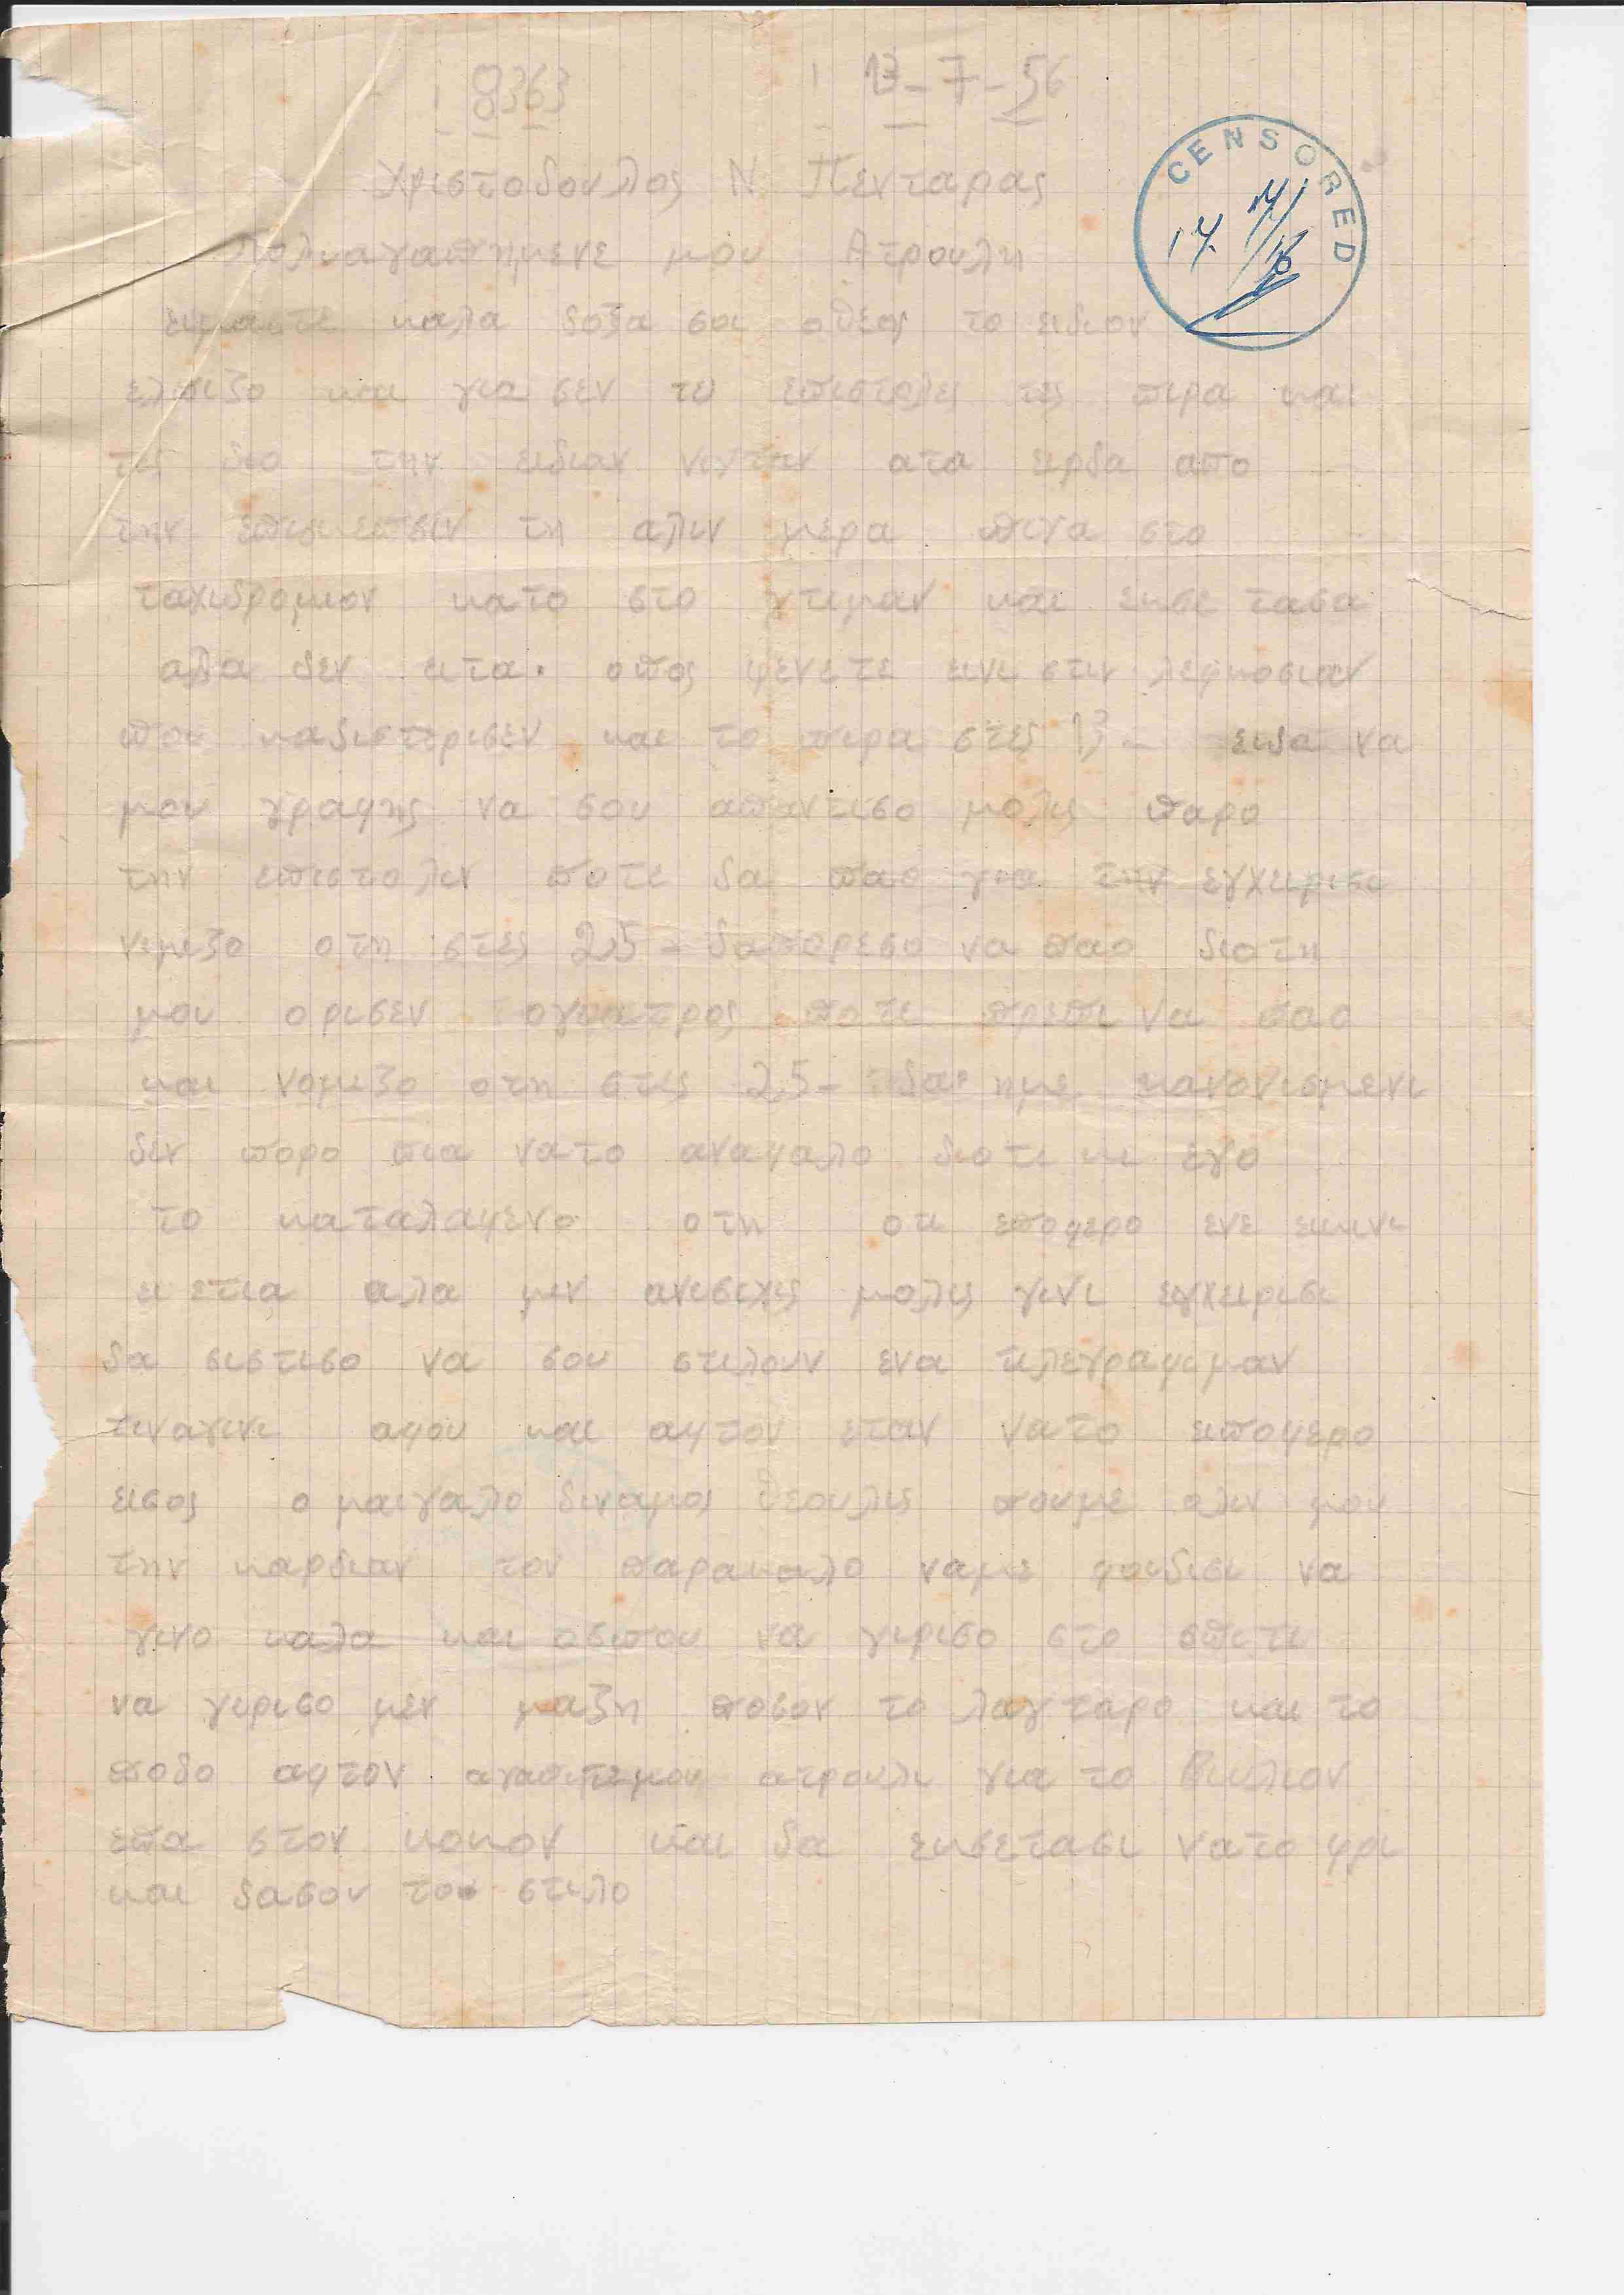 8363 13-7-56
CENSORED
Χριστοδουλος Ν. Πενταρας
Πολυαγαπημενε μου Ατρουλη
ειμαστε καλα δοξα σοι οθεος το ειδιον
ελπιζο και για σεν τει επιστολες τες πιρα και
τις διο την ειδιαν νιχταν οτα ειρδα απο
την επισκεπσιν τη αλιν μερα πιγα στο
ταχιδρομιον κατο στο χτιμαν και εκσε τασα
αλα δεν ειτα. οπος φενετε εινι στιν λεφκοσιαν
που καδιστερισεν και το πιρα στες 13 - ειδα να
μου γραφης να σου απαντισο μολις παρο
την επιστολιν ποτε δα παο για την εγχειρισι
νομιζο οτη στες 25 - δαπορεσο να παο διοτη
μου ορισεν ογιατρος ποτε πρεπι να παο
και νομιζο οτη στες 25 - δα ημε κανονισμενι
δεν πορο πια νατο αναβαλο διοτι κι εγο
το καταλαφενο οτη οτι εποφερο ενε εκινι
ει ετια αλα μεν ανισιχις μολις γινι εγχειρισι
δα σιστισο να σου στιλουν ενα τιλεγραφιμαν
τιναγινι αφου και αφτον εταν νατο ειποφερο
εισος ο μαιγαλο διναμος θεουλις πουμε ολιν μου
την καρδιαν τον παρακαλο ναμε φοιδισι να
γινο καλα και οσιπου να γιρισο στο σπιτι
να γιρισο μεν μαζη ποσον το λαχταρο και το
ποδο αφτον αγαπιτεμου ατρουλι για το Βιβλιον
επα στον κοκον και δα εκσετασι νατο φρι
και δασον το στιλο